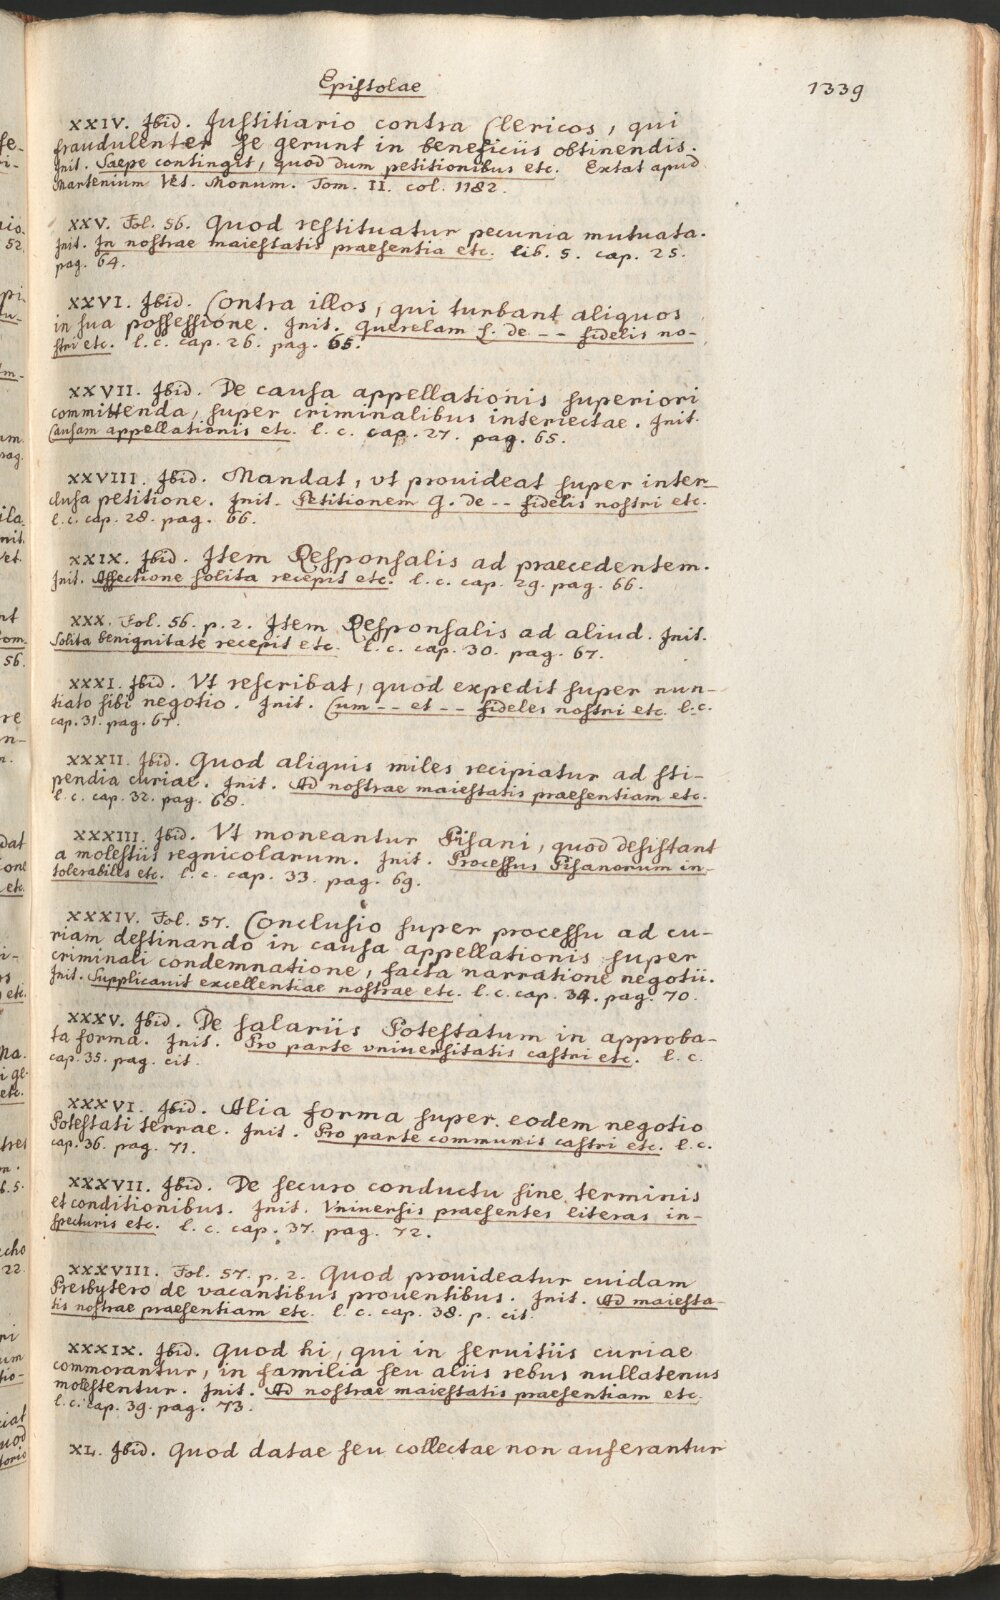 Epistolae
1339
XXIV. Ibid. Justitiario contra Clericos, qui
fraudulenter se gerunt in beneficiis obtinendis.
Init. Saepe contingit, quod dum petitionibus etc. Extat apud
Martenium Vet. Monum. Tom. II. col. 1182.
XXV. Fol. 56. Quod restituatur pecunia mutuata.
Init. In nostrae maiestatis praesentia etc. lib. 5. cap. 25.
pag. 64.
XXVI. Ibid. Contra illos, qui turbant aliquos
in sua possessione. Init. Querelam f. de -- fidelis no-
stri etc. l. c. cap. 26. pag. 65.
XXVII. Ibid. De causa appellationis superiori
committenda, super criminalibus interiectae. Init.
Causam appellationis etc. l. c. cap. 27. pag. 65.
XXVIII. Ibid. Mandat, vt prouideat super inter-
clusa petitione. Init. Petitionem G. de -- fidelis nostri etc.
l. c. cap. 28. pag. 66.
XXIX. Ibid. Item Responsalis ad praecedentem.
Init. Affectione solita recepit etc. l. c. cap. 29. pag. 66.
XXX. Fol. 56. p. 2. Item Responsalis ad aliud. Init.
Solita benignitate recepit etc. l. c. cap. 30. pag. 67.
XXXI. Ibid. Vt rescribat, quod expedit super nun-
tiato sibi negotio. Init. Cum -- et -- fideles nostri etc. l. c.
cap. 31. pag. 67.
XXXII. Ibid. Quod aliquis miles recipiatur ad sti-
pendia curiae. Init. Ad nostrae maiestatis praesentiam etc.
l. c. cap. 32. pag. 68.
XXXIII. Ibid. Vt moneantur Pisani, quod desistant
a molestiis regnicolarum. Init. Processus Pisanorum in-
tolerabiles etc. l. c. cap. 33. pag. 69.
XXXIV. Fol. 57. Conclusio super processu ad cu-
riam destinando in causa appellationis super
criminali condemnatione, facta narratione negotii.
Init. Supplicauit excellentiae nostrae etc. l. c. cap. 34. pag. 70.
XXXV. Ibid. De salariis Potestatum in approba-
ta forma. Init. Pro parte vniuersitatis castri etc. l. c.
cap. 35. pag. cit.
XXXVI. Ibid. Alia forma super eodem negotio
Potestati terrae. Init. Pro parte communis castri etc. l. c.
cap. 36. pag. 71.
XXXVII. Ibid. De securo conductu sine terminis
et conditionibus. Init. Vniuersis praesentes literas in-
specturis etc. l. c. cap. 37. pag. 72.
XXXVIII. Fol. 57. p. 2. Quod prouideatur cuidam
Presbytero de vacantibus prouentibus. Init. Ad maiesta-
tis nostrae praesentiam etc. l. c. cap. 38. p. cit.
XXXIX. Ibid. Quod hi, qui in seruitiis curiae
commorantur, in familia seu aliis rebus nullatenus
molestentur. Init. Ad nostrae maiestatis praesentiam etc.
l. c. cap. 39. pag. 73.
XL. Ibid. Quod datae seu collectae non auferantur